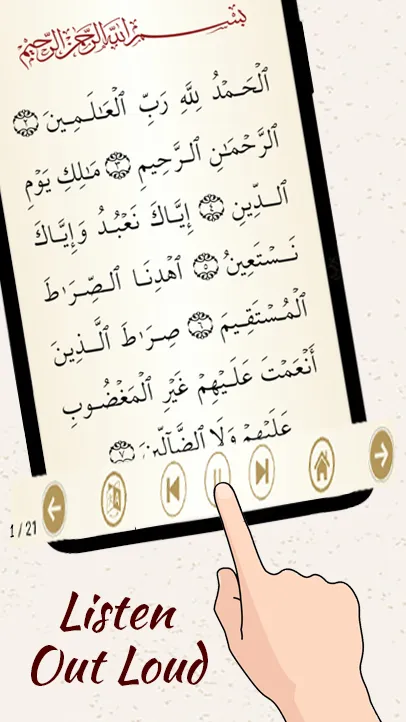 بِسْمِ ٱللَّهِ ٱلرَّحْمَٰنِ ٱلرَّحِيمِ
ٱلْحَمْدُ لِلَّهِ رَبِّ ٱلْعَالَمِينَ ٢
ٱلرَّحْمَٰنِ ٱلرَّحِيمِ ٣ مَالِكِ يَوْمِ
ٱلدِّينِ ٤ إِيَّاكَ نَعْبُدُ وَإِيَّاكَ
نَسْتَعِينُ ٥ ٱهْدِنَا ٱلصِّرَاطَ
ٱلْمُسْتَقِيمَ ٦ صِرَاطَ ٱلَّذِينَ
أَنْعَمْتَ عَلَيْهِمْ غَيْرِ ٱلْمَغْضُوبِ
عَلَيْهِمْ وَلَا ٱلضَّآلِّينَ ٧
1 / 21
Listen
Out Loud